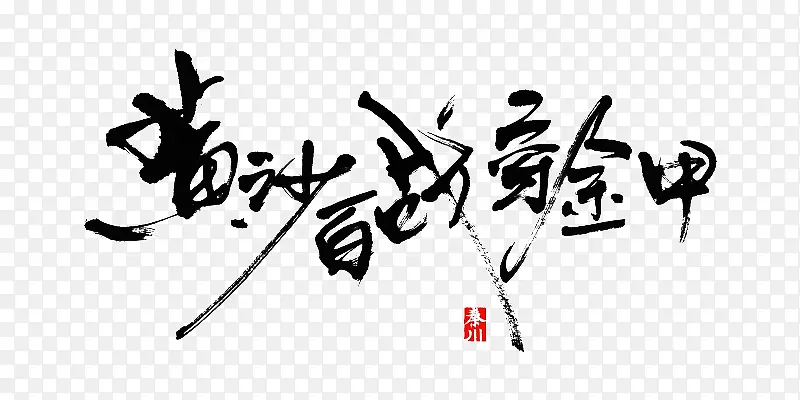 黄沙百战穿金甲
秦川